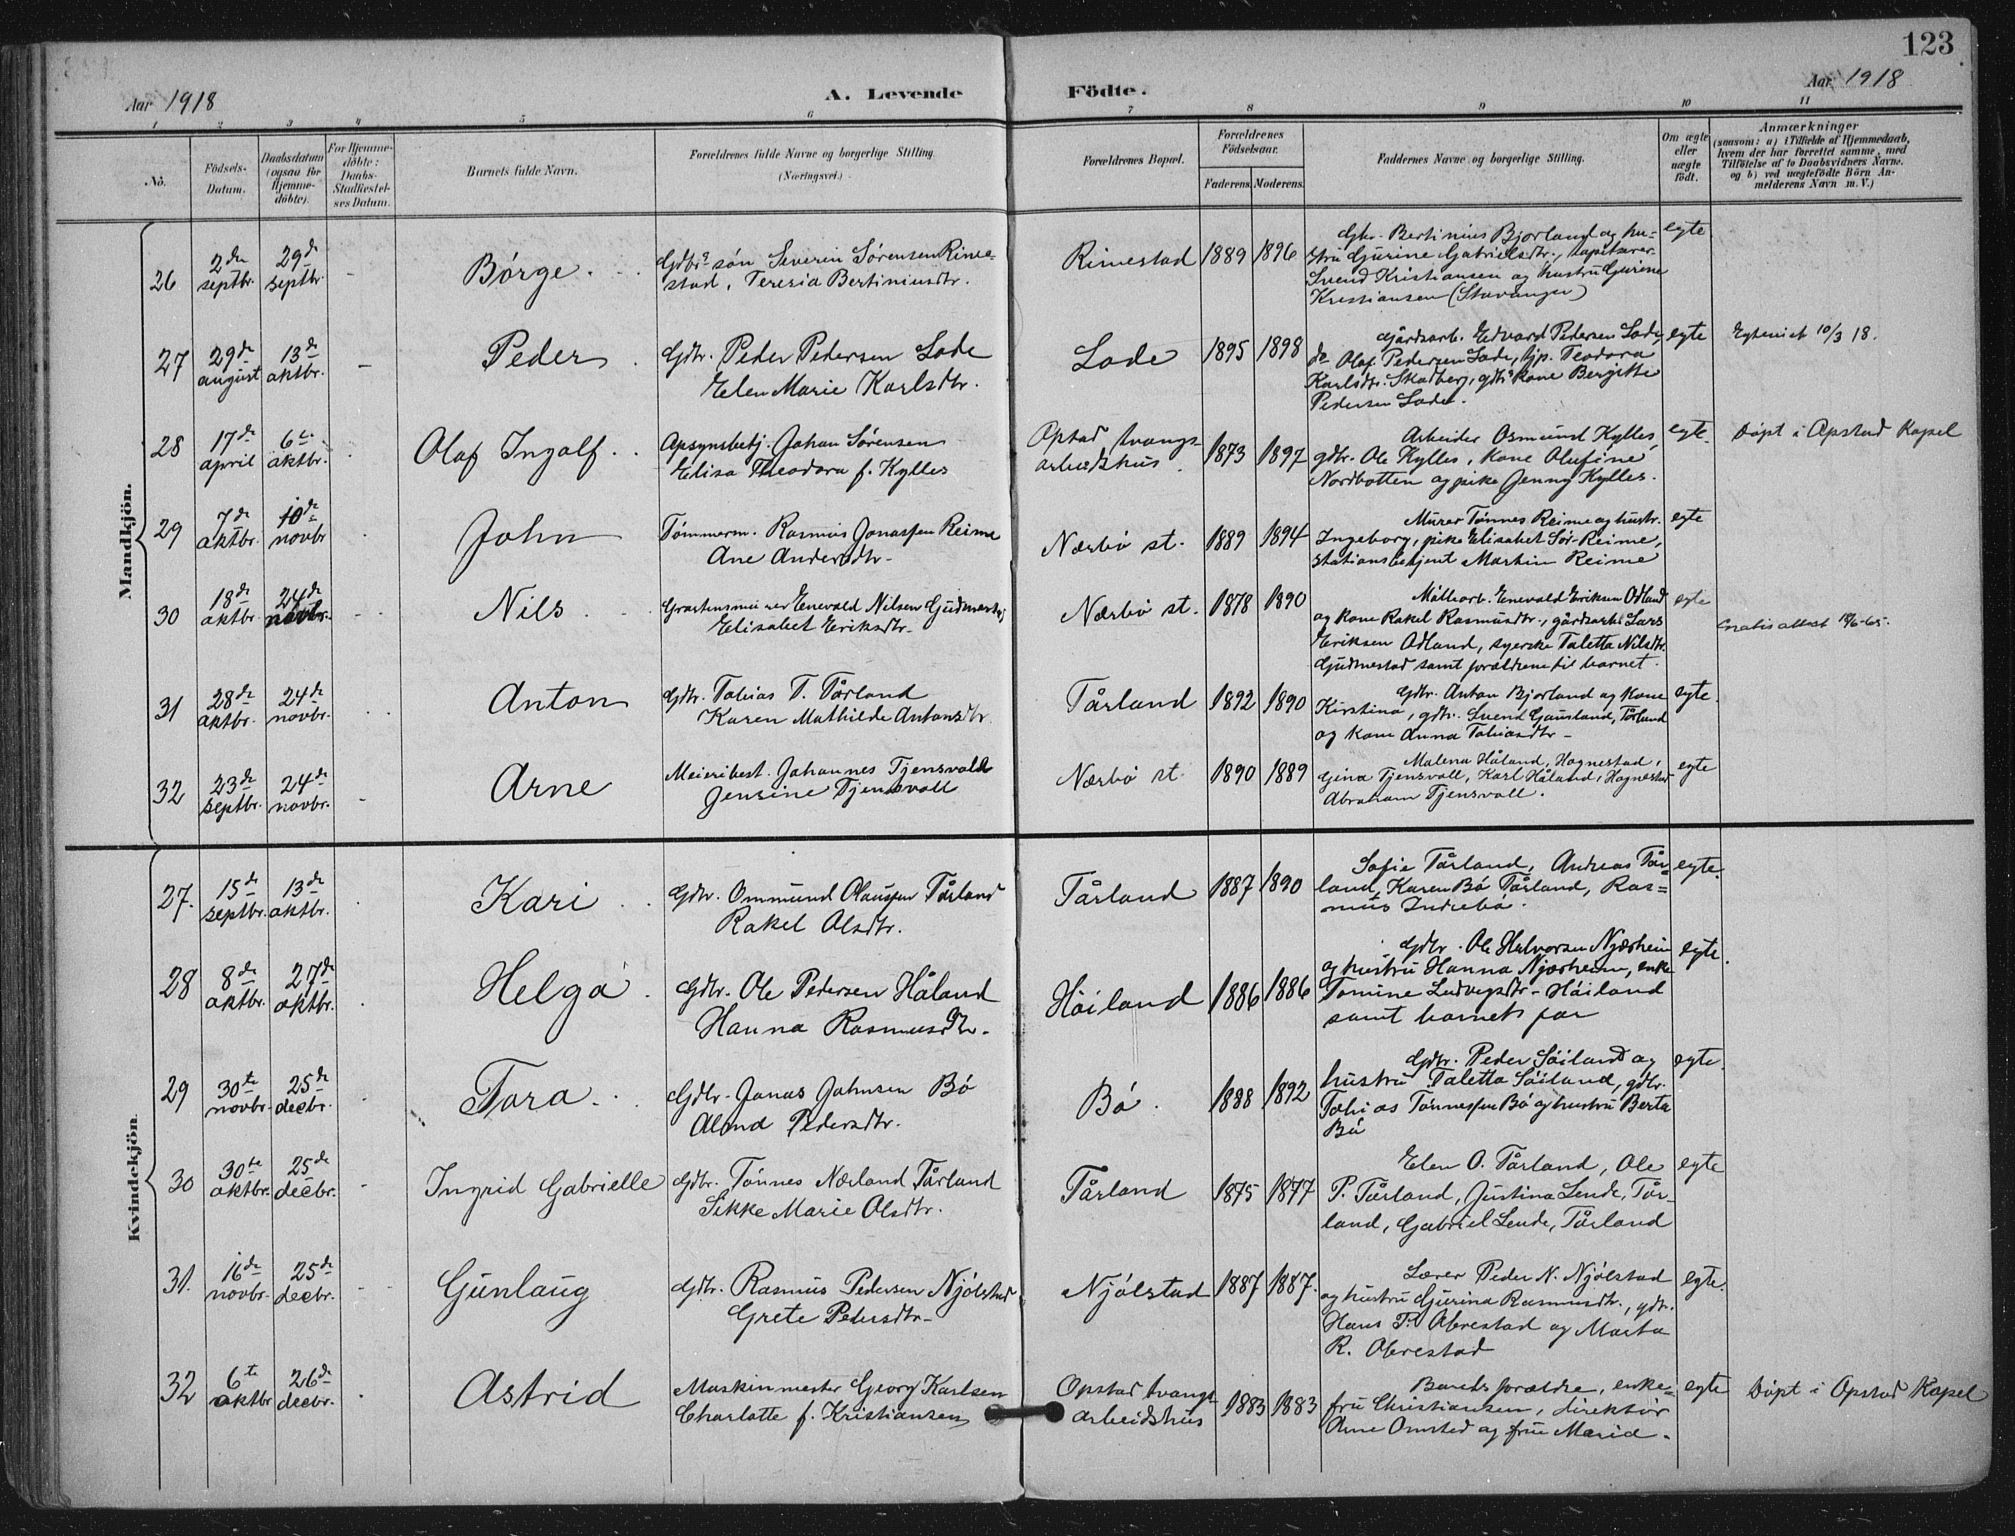 123
Aar 1918
A. Levende
Födte.
Aar 1918
1
2
3
4
5
6
7
8
9
10
11
No.
Födsels-
Datum.
Daabsdatum
(ogsaa for
Hjemme-
döbte).
For Hjemme-
döbte:
Daabs-
Stadfæstel-
ses Datum.
Barnets fulde Navn.
Forældrenes fulde Navne og borgerlige Stilling
(Næringsvei.)
Forældrenes Bopæl.
Forældrenes
Födselsaar.
Faderens.
Moderens.
Faddernes Navne og borgerlige Stilling.
Om ægte
eller
uægte
födt.
Anmærkninger
(saasom: a) i Tilfælde af Hjemmedaab,
hvem der har forrettet samme, med
Tilföielse af to Daabsvidners Navne.
og b) ved uægtefödte Börn An-
melderens Navn m. V.)
Mandkjön.
26
2den septbr.
29de septbr
-
Børge.
Gdbrs søn Severin Sørensen Rime-
stad, Teresia Bertiniusdtr.
Rimestad
1889
1896
Gbr. Bertinius Bjorland og hu-
stru Gurine Gabrielsdtr.,
Svend Kristiansen og hustru Gurine
Kristiansen (Stavanger)
egte
27
29de august
13de oktbr.
-
Peder
Gdbr. Peder Pedersen Lode
Elen Marie Karlsdtr.
Lode
1895
1898
Gårdsarb. Edvard Pedersen Lode,
do Olaf Pedersen Lode, tjp. Teodora
Karlsdtr. Skadberg, gdbrs kone Bergitte
Pedersen Lode.
egte
Egteviet 10/3 18.
28
17de april
6te oktbr.
Olaf Ingolf.
Opsynsbetj. Johan Sørensen
Elisa Theodora f. Kylles
Opstad tvangs-
arbeidshus.
1873
1897
Arbeider Osmund Kylles,
gdbr. Ole Kylles, kone Olufine
Nordbotten og pike Jenny Kylles.
egte.
Døpt i Opstad Kapel
29
7de oktbr.
10de novbr
John
Tømmerm. Rasmus Jonassen Reime
Ane Andersdtr.
Nærbø st.
1889
1894
Murer Tønnes Reime og hustr.
Ingeborg, pike Elisabet Sør-Reime,
stationsbetjent Martin Reime
egte
30
18de oktbr.
24de novbr.
Nils.
Gråstensmurer Enevald Nilsen Gudmestad
Elisabet Eriksdtr.
Nærbø st.
1878
1890
Møllearb. Enevald Eriksen Odland
og kone Rakel Rasmusdtr., gårdsarb. Lars
Eriksen Odland, syerske Taletta Nilsdtr.
Gudmestad samt forældrene til barnet.
egte
Gratis attest 18/6-65.
31
28de oktbr.
24de novbr.
Anton
Gdbr. Tobias T. Tårland
Karen Mathilde Antonsdtr.
Tårland
1892
1890
Gdbr. Anton Bjorland og kone
Kirstina, gdbr. Svend Gausland, Tårland
og kone Anna Tobiasdtr-
egte.
32
23de septbr.
24de novbr.
-
Arne
Meieribest. Johannes Tjensvold
Jensine Tjensvoll
Nærbø st.
1890
1889
Malena Håland, Hognestad,
Gina Tjensvoll, Karl Håland, Hognestad
Abraham Tjensvoll.
egte
Kvindekjön.
27.
15de septbr.
13de oktbr.
Kari
Gdbr. Ommund Olaussen Tårland
Rakel Olsdtr.
Tårland
1887
1890
Sofie Tårland, Andreas Tår-
land, Karen Bø Tårland, Ras=
mus Indrebø.
egte.
28
8de oktbr.
27de oktbr.
Helga.
Gdbr. Ole Pedersen Håland
Hanna Rasmusdtr.
Höiland
1886
1886
Gdbr. Ole Halvorsen Njærheim
og hustru Hanna Njærheim, enke
Tomine Ludvigsdtr- Höiland
samt barnets far
egte.
29
30te novbr.
25de decbr.
Tora.
Gdbr. Jonas Johnsen Bö
Alond Pedersdtr.
Bö.
1888
1892
Gdbr. Peder Söiland og
hustru Taletta Söiland, gdbr.
Tobias Tønnessen Bö og hustru Berta
Bö
egte.
30
30te oktbr.
25de decbr.
-
Ingrid Gabrielle
Gdbr. Tönnes Nærland Tårland
Sikke Marie Olsdtr.
Tårland
1875
1877
Elen O. Tårland, Ole
P. Tårland, Justina Lende, Tår-
land, Gabriel Lende, Tårland
egte
31.
16de novbr.
25de decbr.
Gunlaug
Gdbr. Rasmus Pedersen Njölstad
Grete Pedersdtr-
Njölstad
1887
1887.
Lærer Peder N. Njölstad
og hustru Gurina Rasmusdtr., gdbr.
Hans P. Obrestad og Marta
R. Obrestad
egte.
32
6te oktbr
26de decbr.
Astrid
Maskinmester Georg Karlsen
Charlotte f. Kristiansen
Opstad tvangs-
arbeidshus
1883
1883
Barnets forældre, enke=
fru Christiansen, direktör
Arne Omsted og frue Marie.
egte
Döpt i Opstad Kapel